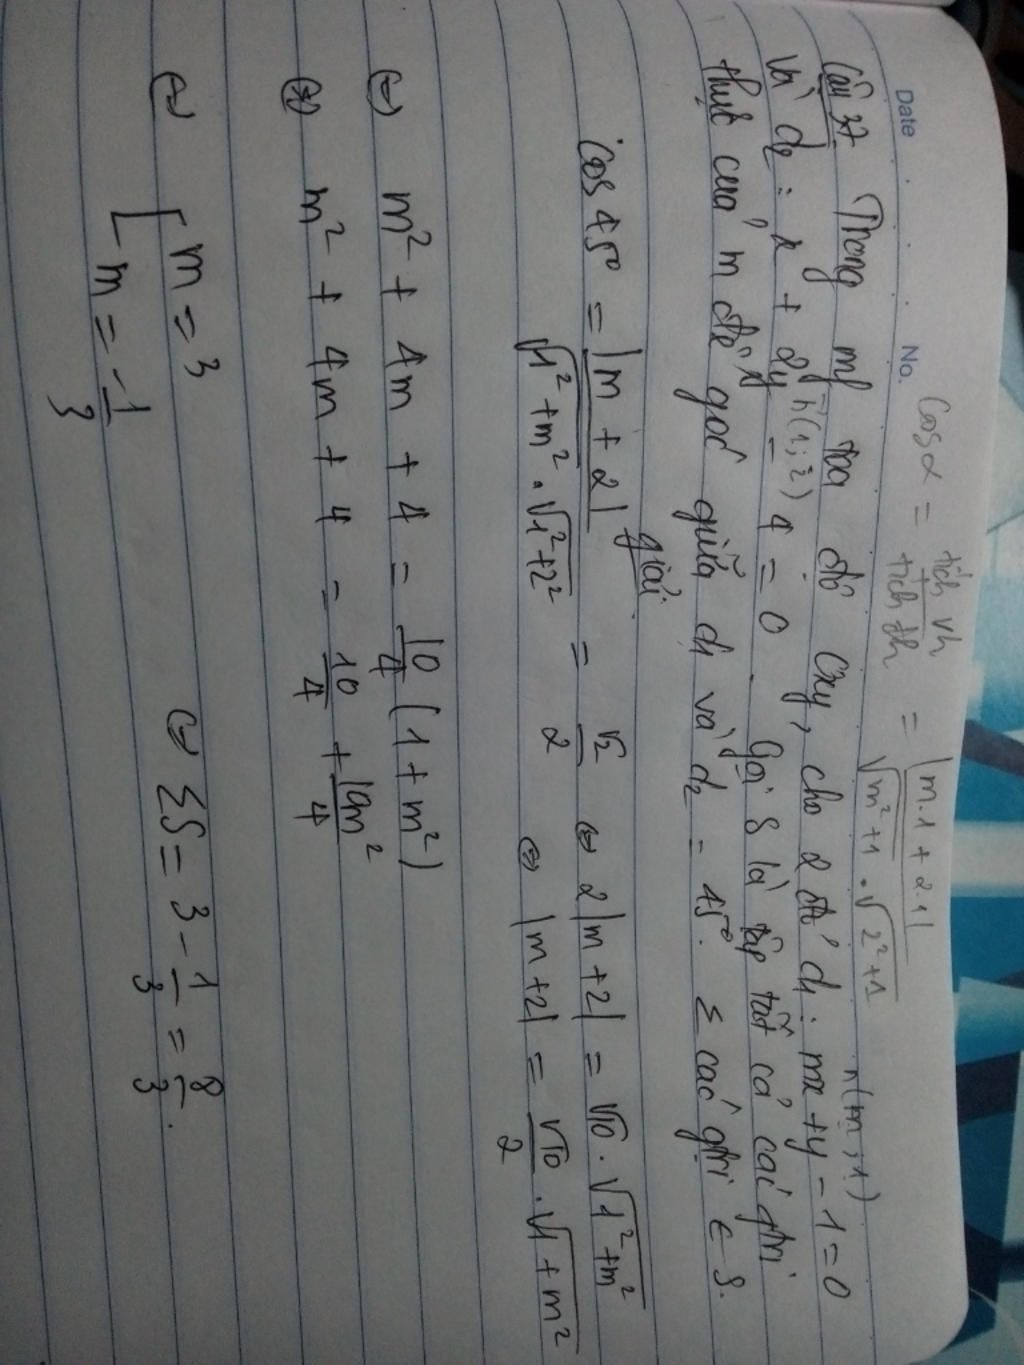 Date No.
Cosα = tích vh / tích đh = |m.1 + 2.1| / √m²+1 . √2²+1
n(m;1)
Câu 37. Trong mp tọa độ Oxy, cho 2 đt d₁: mx + y - 1 = 0
và d₂: x + 2y - 4 = 0. Gọi S là tập tất cả các gtri
n(1;2)
thực của m để góc giữa d₁ và d₂ = 45°. Σ các gtri ∈ S.
giải
Cos 45° = |m + 2| / √1²+m² . √1²+2² = √2 / 2 ⇔ 2|m+2| = √10 . √1²+m²
⇔ |m+2| = √10 / 2 . √1+m²
⇔ m² + 4m + 4 = 10/4 (1 + m²)
⇔ m² + 4m + 4 = 10/4 + 10m²/4
⇔ [ m = 3
m = -1/3
⇔ ΣS = 3 - 1/3 = 8/3.